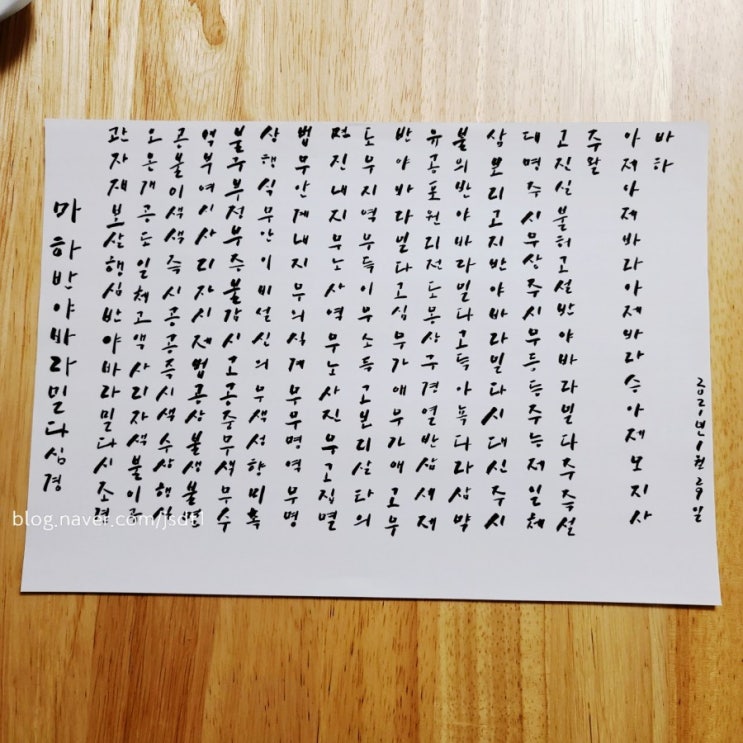 마하반야바라밀다심경
관자재보살행심반야바라밀다시조견
오온개공도일체고액사리자색불이공
공불이색색즉시공공즉시색수상행식
역부여시사리자시제법공상불생불멸
불구부정부증불감시고공중무색무수
상행식무안이비설신의무색성향미촉
법무안계내지무의식계무무명역무명
진내지무노사역무노사진무고집멸
도무지역무득이무소득고보리살타의
반야바라밀다고심무가애무가애고무
유공포원리전도몽상구경열반삼세제
불의반야바라밀다고득아뇩다라삼먁
삼보리고지반야바라밀다시대신주시
대명주시무상주시무등등주능제일체
고진실불허고설반야바라밀다주즉설
주왈
아제아제바라아제바라승아제모지사
바하
2021년 1월 29일